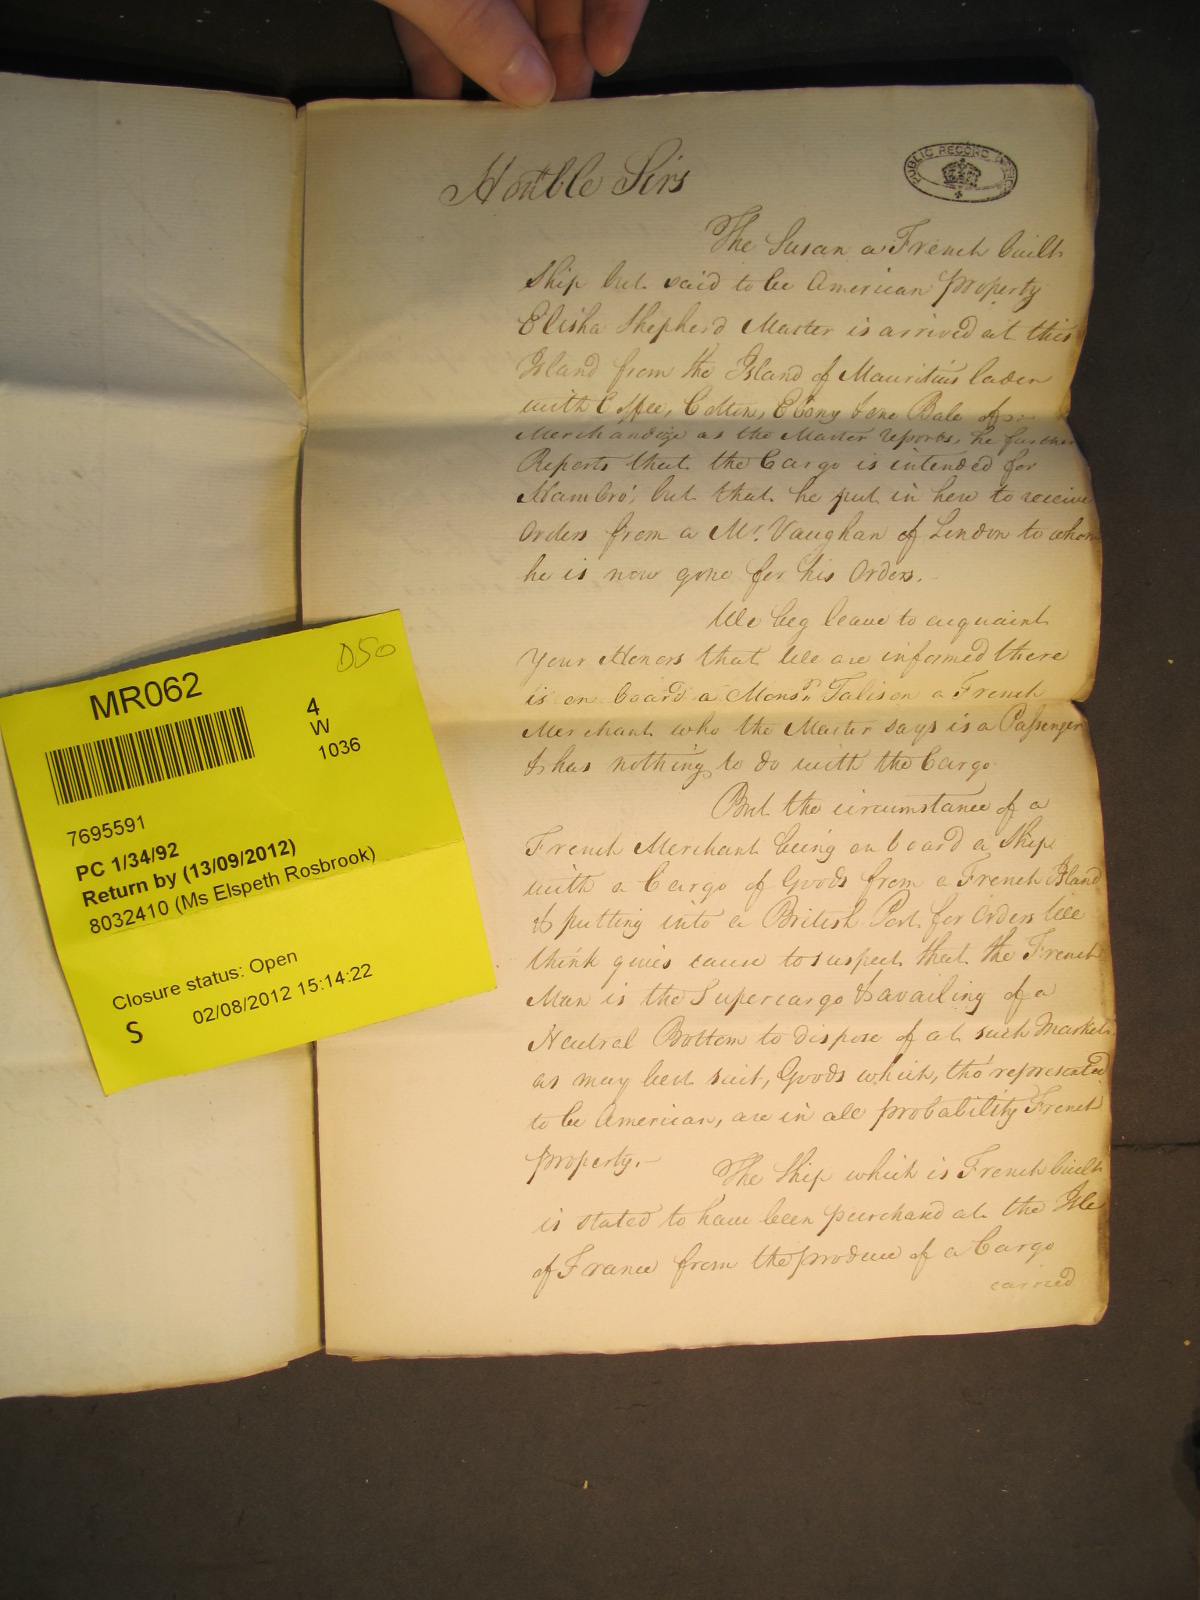 Honble Sirs
PUBLIC RECORD OFFICE
The Susan a French built
Ship but said to be American property
Elisha Shepherd Master is arrived at this
Island from the Island of Mauritius laden
with Coffee, Cotton, Ebony & one Bale of
Merchandize as the Master reports, he further
Reports that the Cargo is intended for
Hambro', but that he put in here to receive
Orders from a Mr. Vaughan of London to whom
he is now gone for his Orders.
We beg leave to acquaint
Your Honors that We are informed there
is on board a Monsr. Talison a French
Merchant who the Master says is a Passenger
& has nothing to do with the Cargo
But the circumstance of a
French Merchant being on board a Ship
with a Cargo of Goods from a French Island
& putting into a British Port for Orders We
think gives cause to suspect that the French
Man is the Supercargo & availing of a
Neutral Bottom to dispose of at such Markets
as may best suit, Goods which, tho' represented
to be American, are in all probability French
property.-
The Ship which is French built
is stated to have been purchased at the Isle
of France from the produce of a Cargo
carried
D50
MR062
4
W
1036
7695591
PC 1/34/92
Return by (13/09/2012)
8032410 (Ms Elspeth Rosbrook)
Closure status: Open
S 02/08/2012 15:14:22